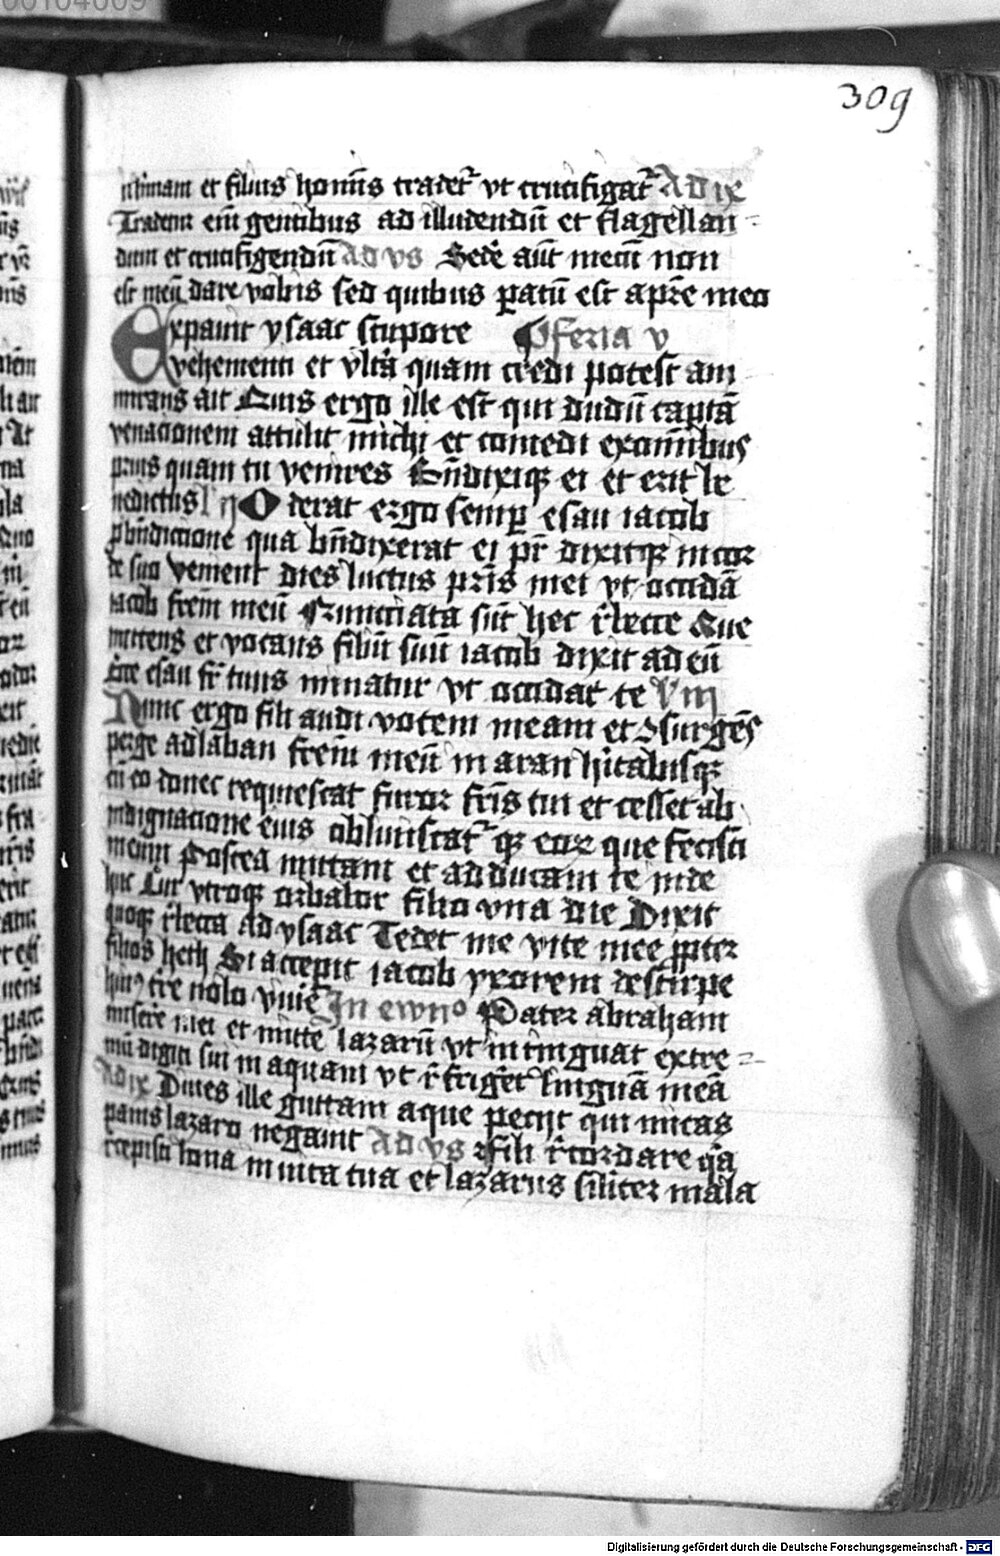 309
ultimam et filius homīs tradet᷑ vt crucifigat᷑ Ad ix
Tradent eū gentibus ad illudendū et flagellan⸗
dum et crucifigendū Ad vs Sedē aūt meā non
est meū dare vobis sed quibus patū est a pr̄e meo
Expauit ysaac stupore Feria v
vehementi et vltᵃ quam credi potest am
mirans ait Quis ergo ille est qui dudū captā
venacionem attulit michi et comedi ex om̄ibus
prius quam tu venires Bn̄dixiqꝫ ei et erit be
nedictus l' ij Oderat ergo semp̄ esau iacob
p bn̄dictione qua bn̄dixerat ei pr̄ dixitqꝫ in cor
de suo venient dies luctus pr̄is mei vt occidā
iacob frēm meū Nunciata sūt hec r̄becce Que
mittens et vocans filiū suū iacob dixit ad eū
Ecce esau fr̄ tuus minatur vt occidat te l' iij
Nunc ergo fili audi vocem meam et ɔsurgēs
perge ad laban frēm meū in aran h̄itabisqꝫ
cū eo donec requiescat furor fr̄is tui et cesset ab
indignacione eius obliuiscat᷑ qꝫ eoꝝ que fecisti
in eum Postea mittam et adducam te inde
huc Cur vtroqꝫ orbabor filio vna die Dixit
quoqꝫ r̄becca ad ysaac Tedet me vite mee ꝓpter
filias heth Si accepit iacob vxorem de stirpe
huiꝰ tr̄e nolo viuē In ewnᵒ Pater abraham
misēre mei et mitte lazarū vt intinguat extre⸗
mū digiti sui in aquam vt r̄frigēt linguā meā
Ad ix Diues ille guttam aque pecijt qui micas
panis lazaro negauit Ad vs fili r̄cordare qᵃ
r̄cepisti bona in uita tua et lazarus sīliter mala
Digitalisierung gefördert durch die Deutsche Forschungsgemeinschaft - DFG